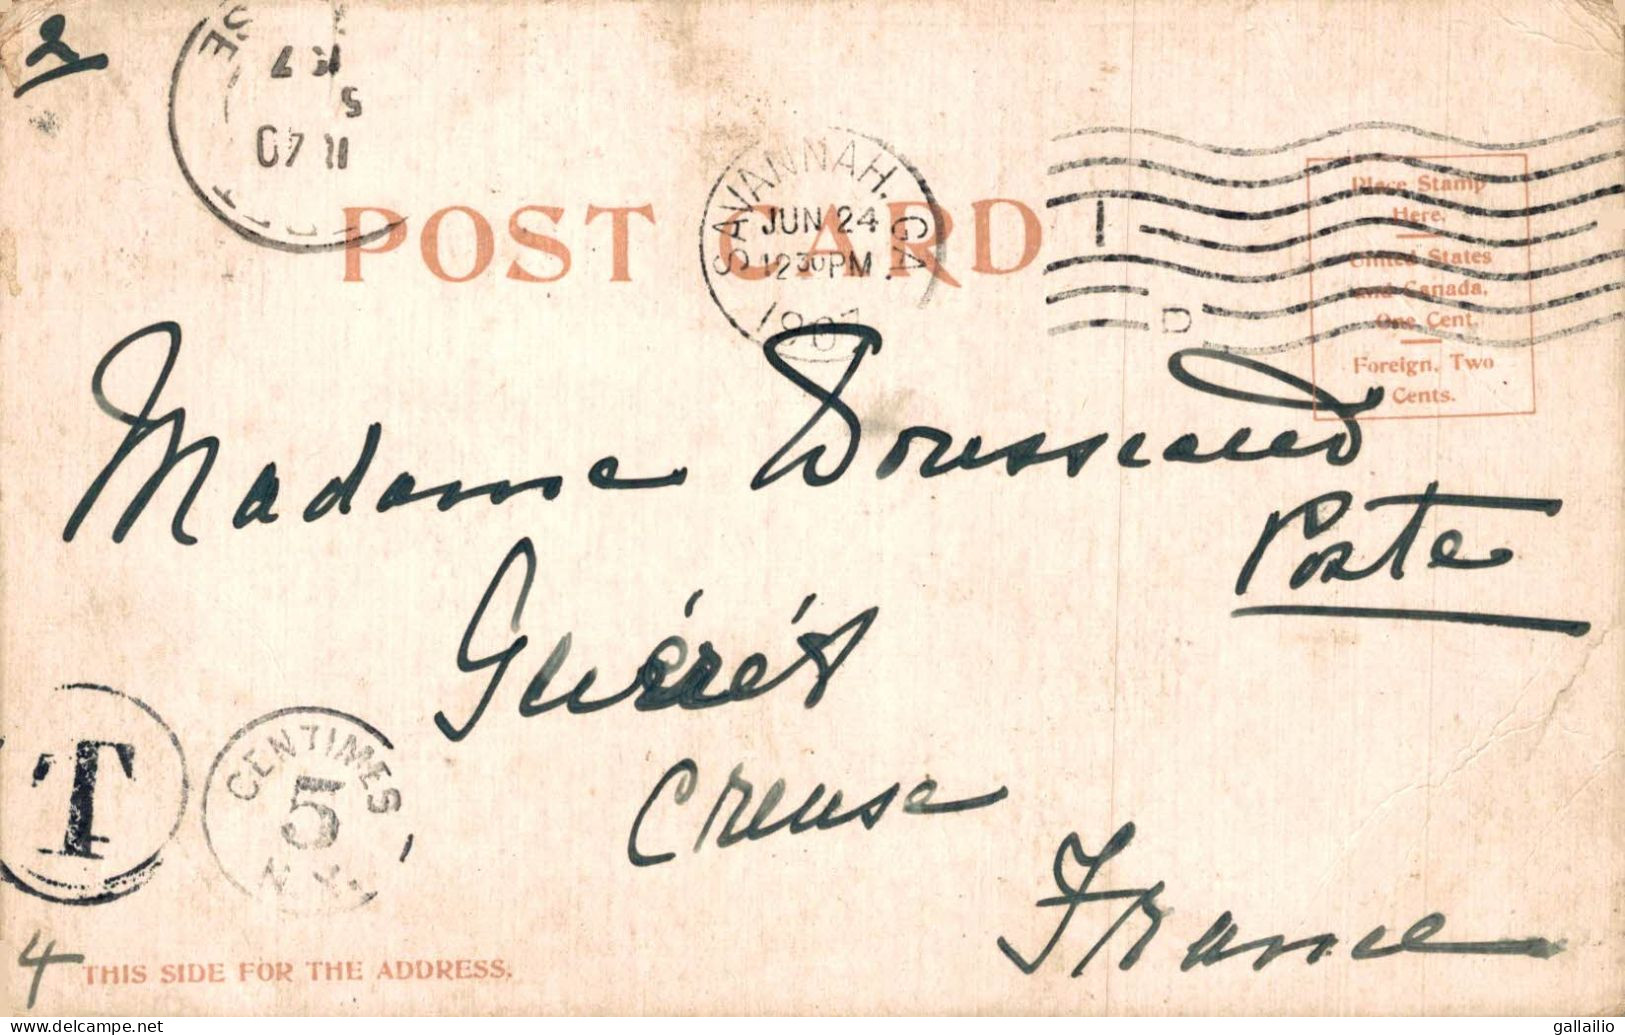 2
R 7
5
11 40
POST CARD
SAVANNAH, GA.
JUN 24
12 30 PM
1907
1
D
Place Stamp
Here.
United States
and Canada,
One Cent.
Foreign, Two
Cents.
Madame
Poste
Guérét
Creuse
France
T
CENTIMES
5
N.Y.
4
THIS SIDE FOR THE ADDRESS.
www.delcampe.net
gallailio